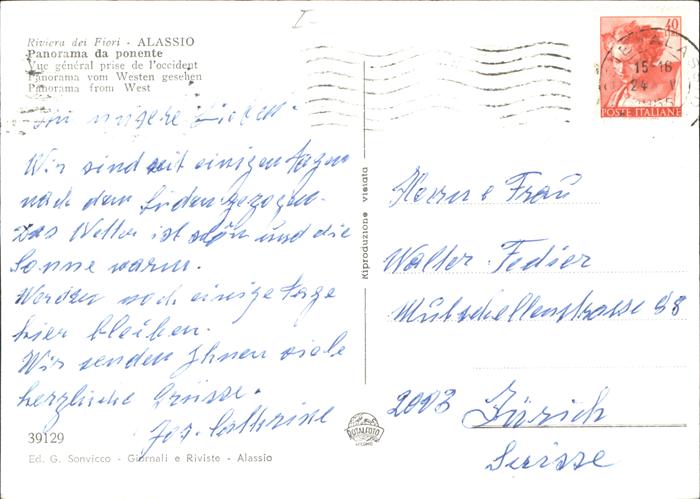 Riviera dei Fiori - ALASSIO
Panorama da ponente
Vue général prise de l'occident
Panorama vom Westen gesehen
Panorama from West
An unsere Lieben.
Wir sind seit einigen Tagen
nach dem Süden gezogen.
Das Wetter ist schön und die
Sonne warm.
Werden noch einige Tage
hier bleiben.
Wir senden Ihnen viele
herzliche Grüsse.
Jos. Cathrine
39129
Ed. G. Sonvicco - Giornali e Riviste - Alassio
Riproduzione vietata
ROTALFOTO
40
15-16
24
POSTE ITALIANE
Herrn e Frau
Walter Fedier
Mutschellenstrasse 58
2003 Zürich
Swisse